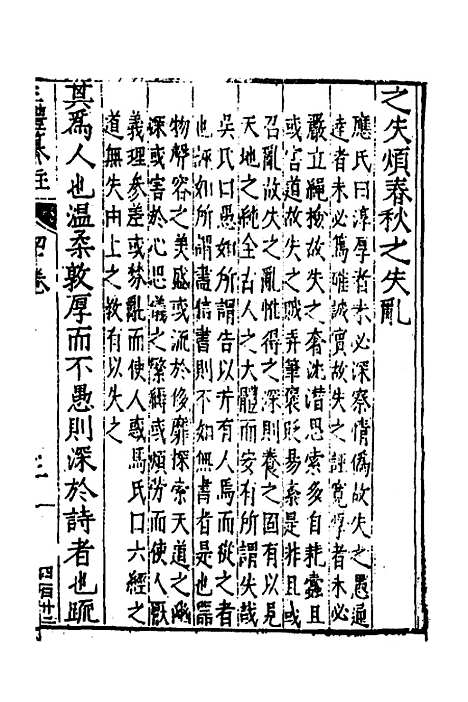 之失煩春秋之失亂
應氏曰淳厚者未必深察情偽故失之愚通
達者未必篤確誠實故失之誣寛愽者未必
嚴立繩撿故失之奢沈潜思索多自耗蠧且
或害道故失之賊弄筆褒貶易紊是非且或
召亂故失之亂惟得之深則養之固有以見
天地之純全古人之大體而安有所謂失哉
吴氏曰愚如所謂告以井有人焉而從之者
也誣如所謂盡信書則不如無書者是也當
物聲容之美盛或流於侈靡探索天道之
深或害於心思儀之繁縟或煩勞而使人厭
義理參差或棼亂而使人惑馬氏曰六經之
道無失由上之教有以失之
其爲人也温柔敦厚而不愚則深於詩者也䟽
卷